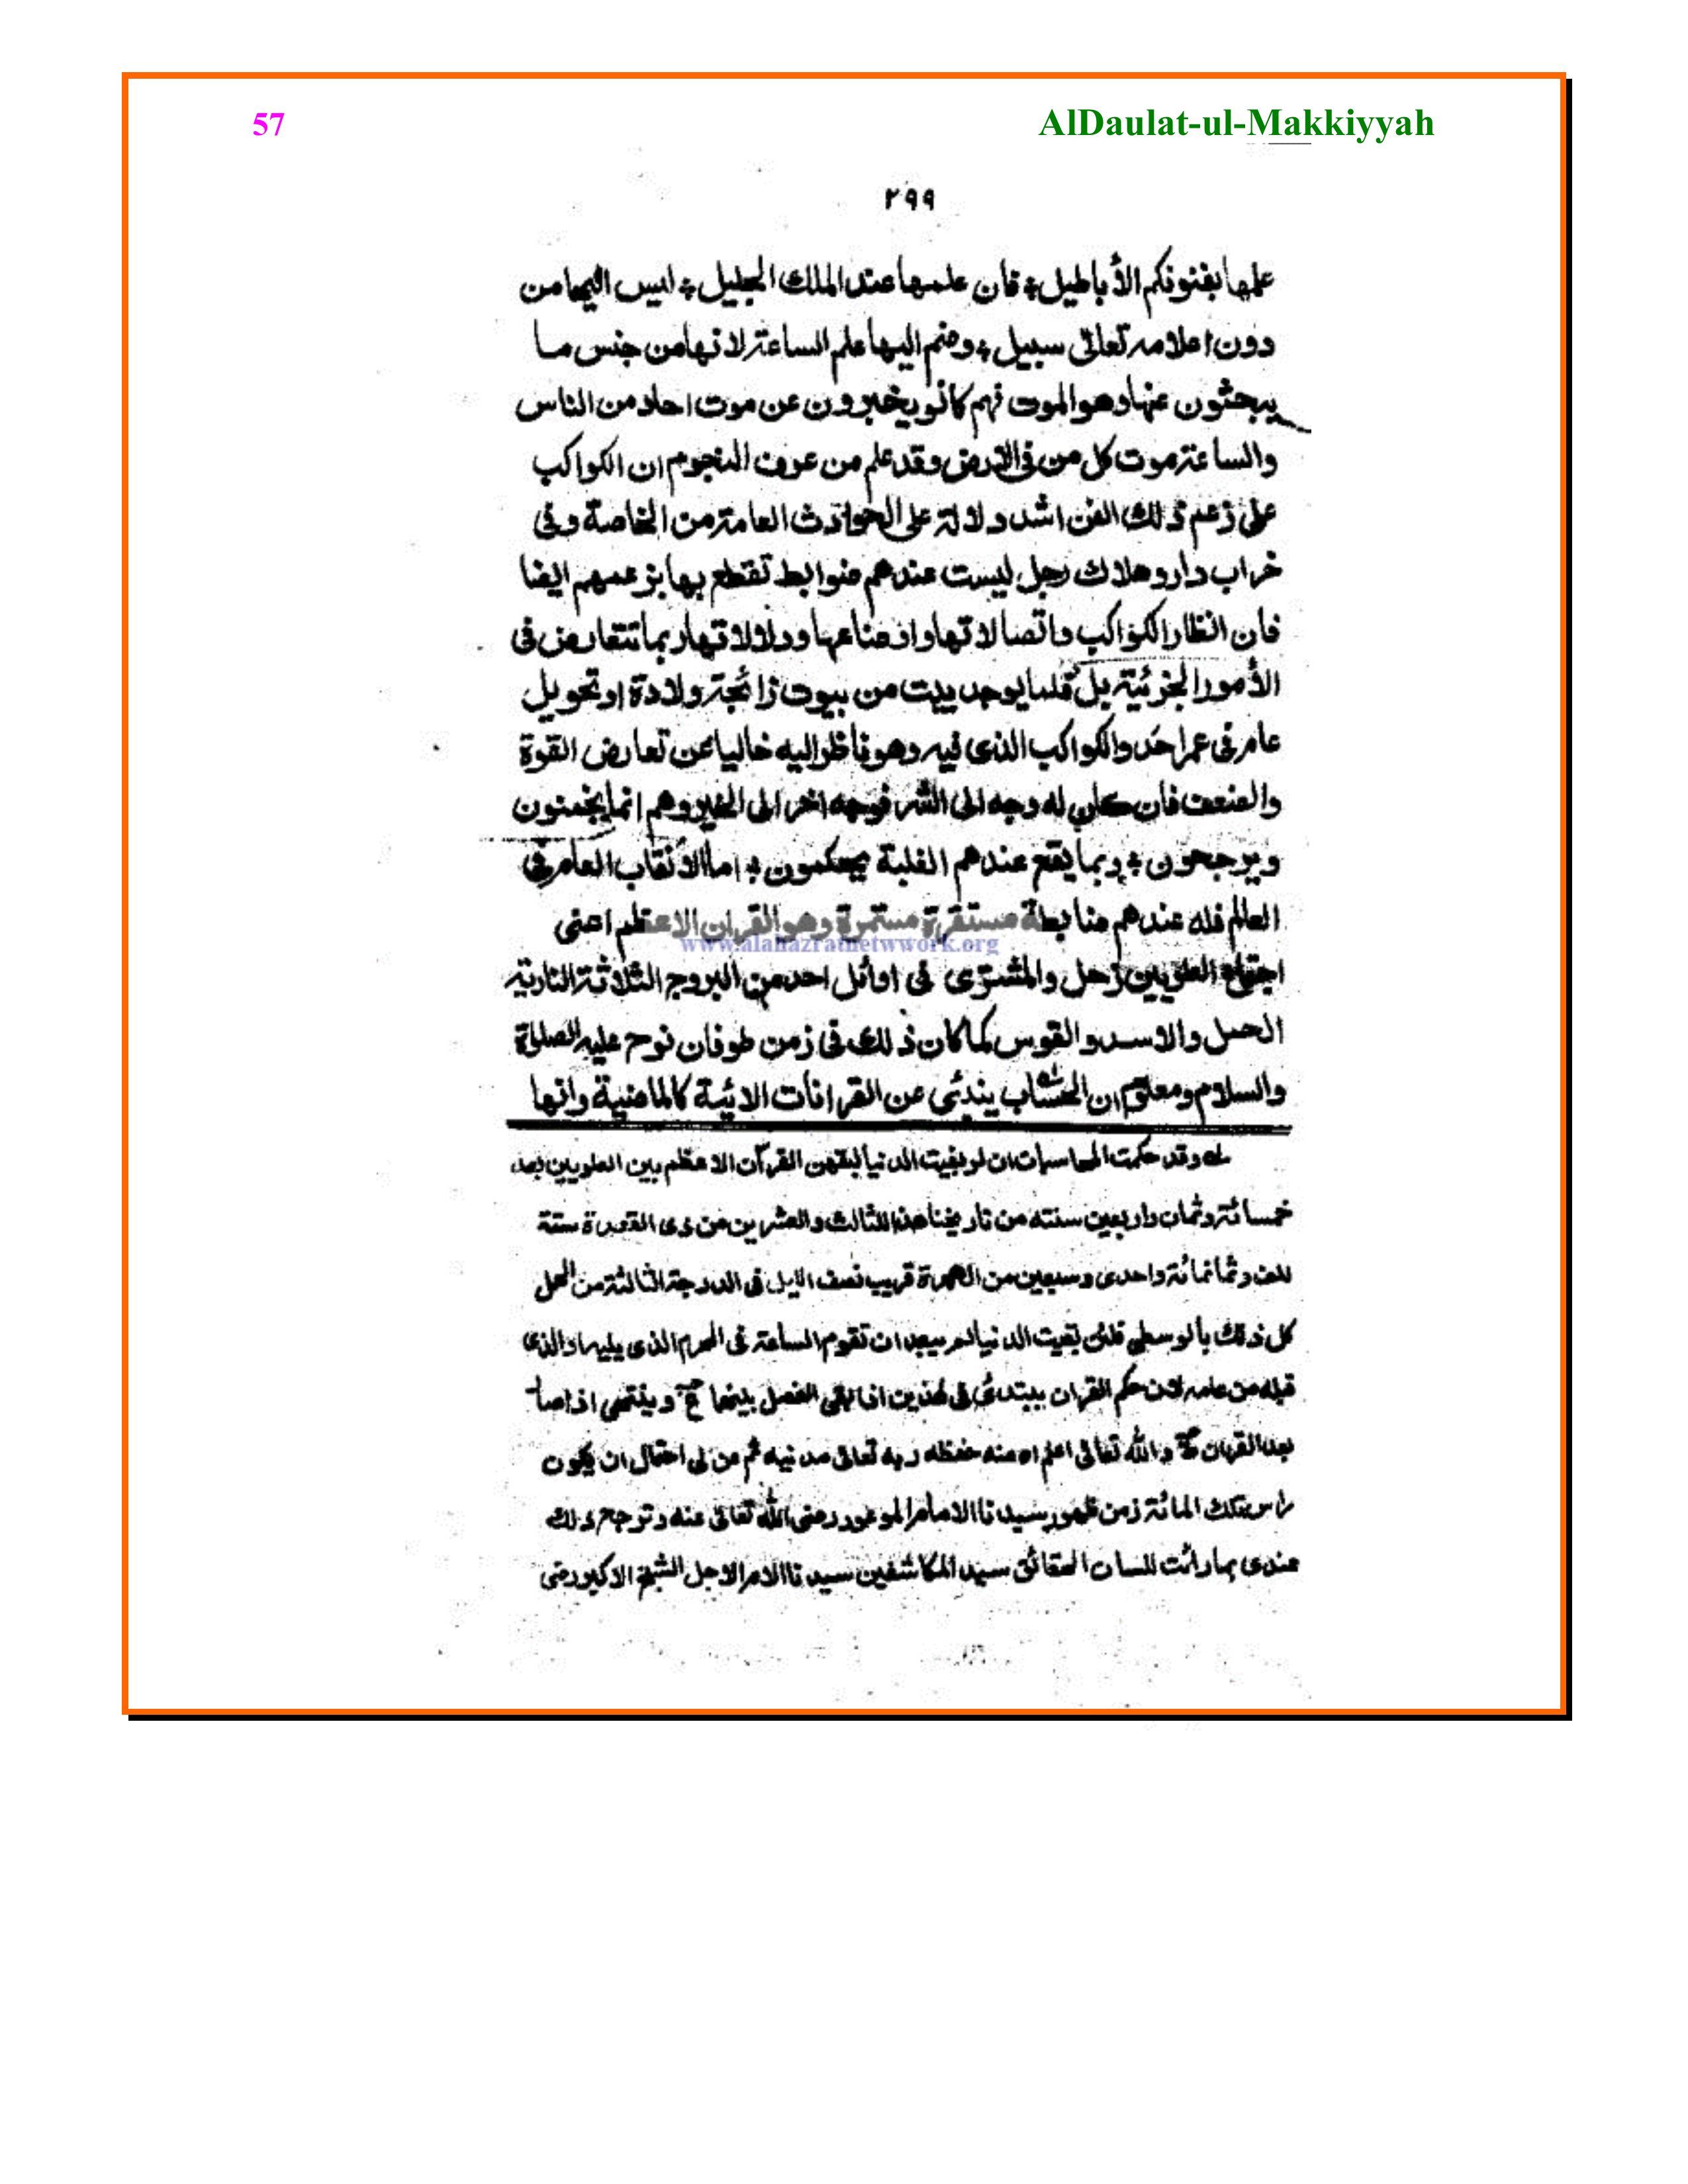 57
AlDaulat-ul-Makkiyyah
٢٩٩
علمها بفنونكم الأباطيل ۞ فان علمها عند الملك الجليل ۞ ليس اليها من
دون اعلامه تعالى سبيل ۞ وضم اليها علم الساعة لانها من جنس ما
يبحثون عنها وهو الموت فهم كانو يخبرون عن موت احاد من الناس
والساعة موت كل من في الارض وقد علم من عرف النجوم ان الكواكب
على زعم ذلك الفن اشد دلالة على الحوادث العامة من الخاصة وفي
خراب دار وهلاك رجل ليست عندهم ضوابط تقطع بها بزعمهم ايضا
فان انظار الكواكب واتصالاتها واوضاعها ودلالاتها ربما تتعارض في
الأمور الجزئية بل قلما يوجد بيت من بيوت زائجة ولادة او تحويل
عام في عمر احد والكواكب الذى فيه وهو ناظر اليه خاليا عن تعارض القوة
والضعف فان كان له وجه الى الشر فوجه اخر الى الخير وهم انما يخمنون
ويرجحون ۞ وبما يقع عندهم الغلبة يحكمون ۞ اما الانقلاب العام في
العالم فله عندهم ضابطة مستقرة مستمرة وهو القران الاعظم اعنى
www.alahazratnetwork.org
اجتماع العلويين زحل والمشترى في اوائل احد من البروج الثلاثة النارية
الحمل والاسد والقوس كما كان ذلك في زمن طوفان نوح عليه الصلاة
والسلام ومعلوم ان الحساب ينبئ عن القرانات الاتية كالماضية وانها
له وقد حكمت المحاسبات ان لو بقيت الدنيا القرآن الاعظم بين العلويين بعد
خمسائة وثمان واربعين سنته من تاريخنا هذا الثالث والعشرين من ذى القعدة سنة
الف وثمانمائة واحدى وسبعين من الهجرة قريب نصف الليل في الدرجة الثالثة من الحمل
كل ذلك بالوسطى فلئن بقيت الدنيا لم يبعد ان تقوم الساعة في المحرم الذى يليها والذى
قبله من عامه لان حكم القران يبتدئ في هذين اذا بقى الفصل بينهما وينتهى اذا صا
بعد القران والله تعالى اعلم اه منه حفظه ربه تعالى مدنيه ثم عن لى احتمال ان يكون
راس تلك المائة زمن ظهور سيدنا الامام الموعود رضى الله تعالى عنه وترجح ذلك
عندى بما رائت للسان الحقائق سيد المكاشفين سيدنا الامام الاجل الشيخ الاكبر رضى